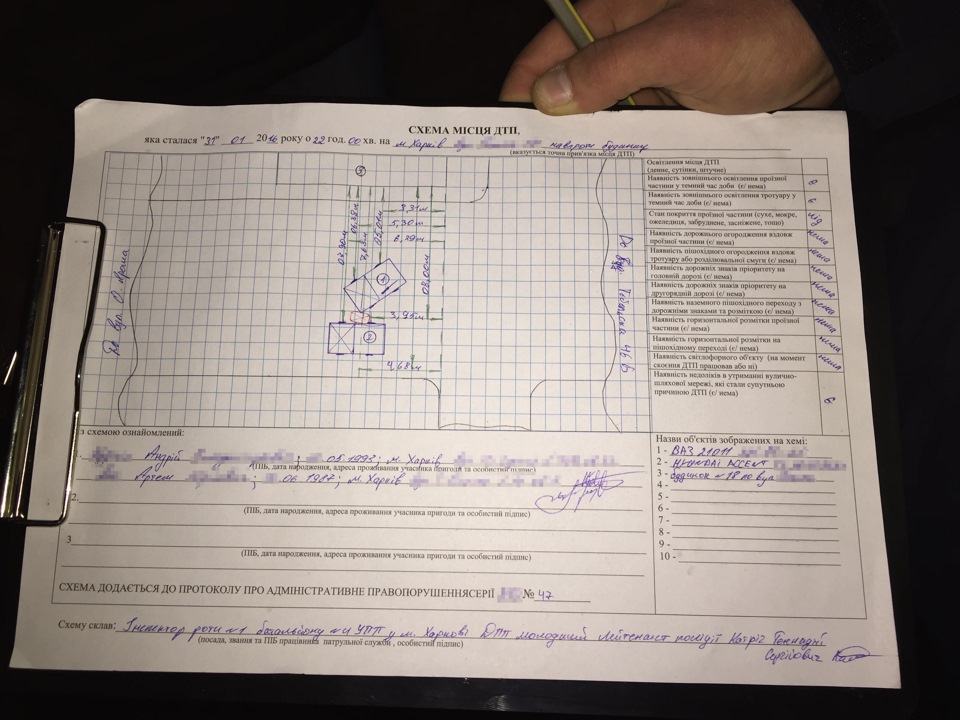 СХЕМА МІСЦЯ ДТП,
яка сталася "31" 01 2016 року о 22 год. 00 хв. на м. Харків навпроти будинку
(вказується точна прив'язка місця ДТП)
3
3,31м
5,30м
6,29м
07.90м
06.38м
7,63м
05,01м
08,00м
1
3,95м
2
4,68м
До вул.
До вул. 46 Б
Освітлення місця ДТП
(денне, сутінки, штучне)
Наявність зовнішнього освітлення проїзної
частини у темний час доби (є/ нема) є
Наявність зовнішнього освітлення тротуару у
темний час доби (є/ нема) є
Стан покриття проїзної частини (сухе, мокре,
ожеледиця, забруднене, засніжене, тощо) лід
Наявність дорожнього огородження вздовж
проїзної частини (є/ нема) нема
Наявність пішохідного огородження вздовж
тротуару або розділювальної смуги (є/ нема) нема
Наявність дорожніх знаків пріоритету на
головній дорозі (є/ нема) нема
Наявність дорожніх знаків пріоритету на
другорядній дорозі (є/ нема) нема
Наявність наземного пішохідного переходу з
дорожніми знаками та розміткою (є/ нема) нема
Наявність горизонтальної розмітки проїзної
частини (є/ нема) нема
Наявність горизонтальної розмітки на
пішохідному переході (є/ нема) нема
Наявність світлофорного об'єкту (на момент
скоєння ДТП працював або ні) нема
Наявність недоліків в утриманні вулично-
шляхової мережі, які стали супутньою
причиною ДТП (є/ нема) є
з схемою ознайомлений:
Андрій .05.1993; м. Харків
(ПІБ, дата народження, адреса проживання учасника пригоди та особистий підпис)
Артем .06.1987; м. Харків
2.
(ПІБ, дата народження, адреса проживання учасника пригоди та особистий підпис)
3
(ПІБ, дата народження, адреса проживання учасника пригоди та особистий підпис)
Назви об'єктів зображених на схемі:
1 - ВАЗ 21011
2 - HYUNDAI ACCENT
3 - будинок №18 по вул
4 -
5 -
6 -
7 -
8 -
9 -
10 -
СХЕМА ДОДАЄТЬСЯ ДО ПРОТОКОЛУ ПРО АДМІНІСТРАТИВНЕ ПРАВОПОРУШЕННЯСЕРІЇ № 47
Схему склав: Інспектор роти №1 батальйону №4 УПП у м. Харкові ДПП молодший лейтенант поліції
(посада, звання та ПІБ працівника патрульної служби , особистий підпис)
Сергійович